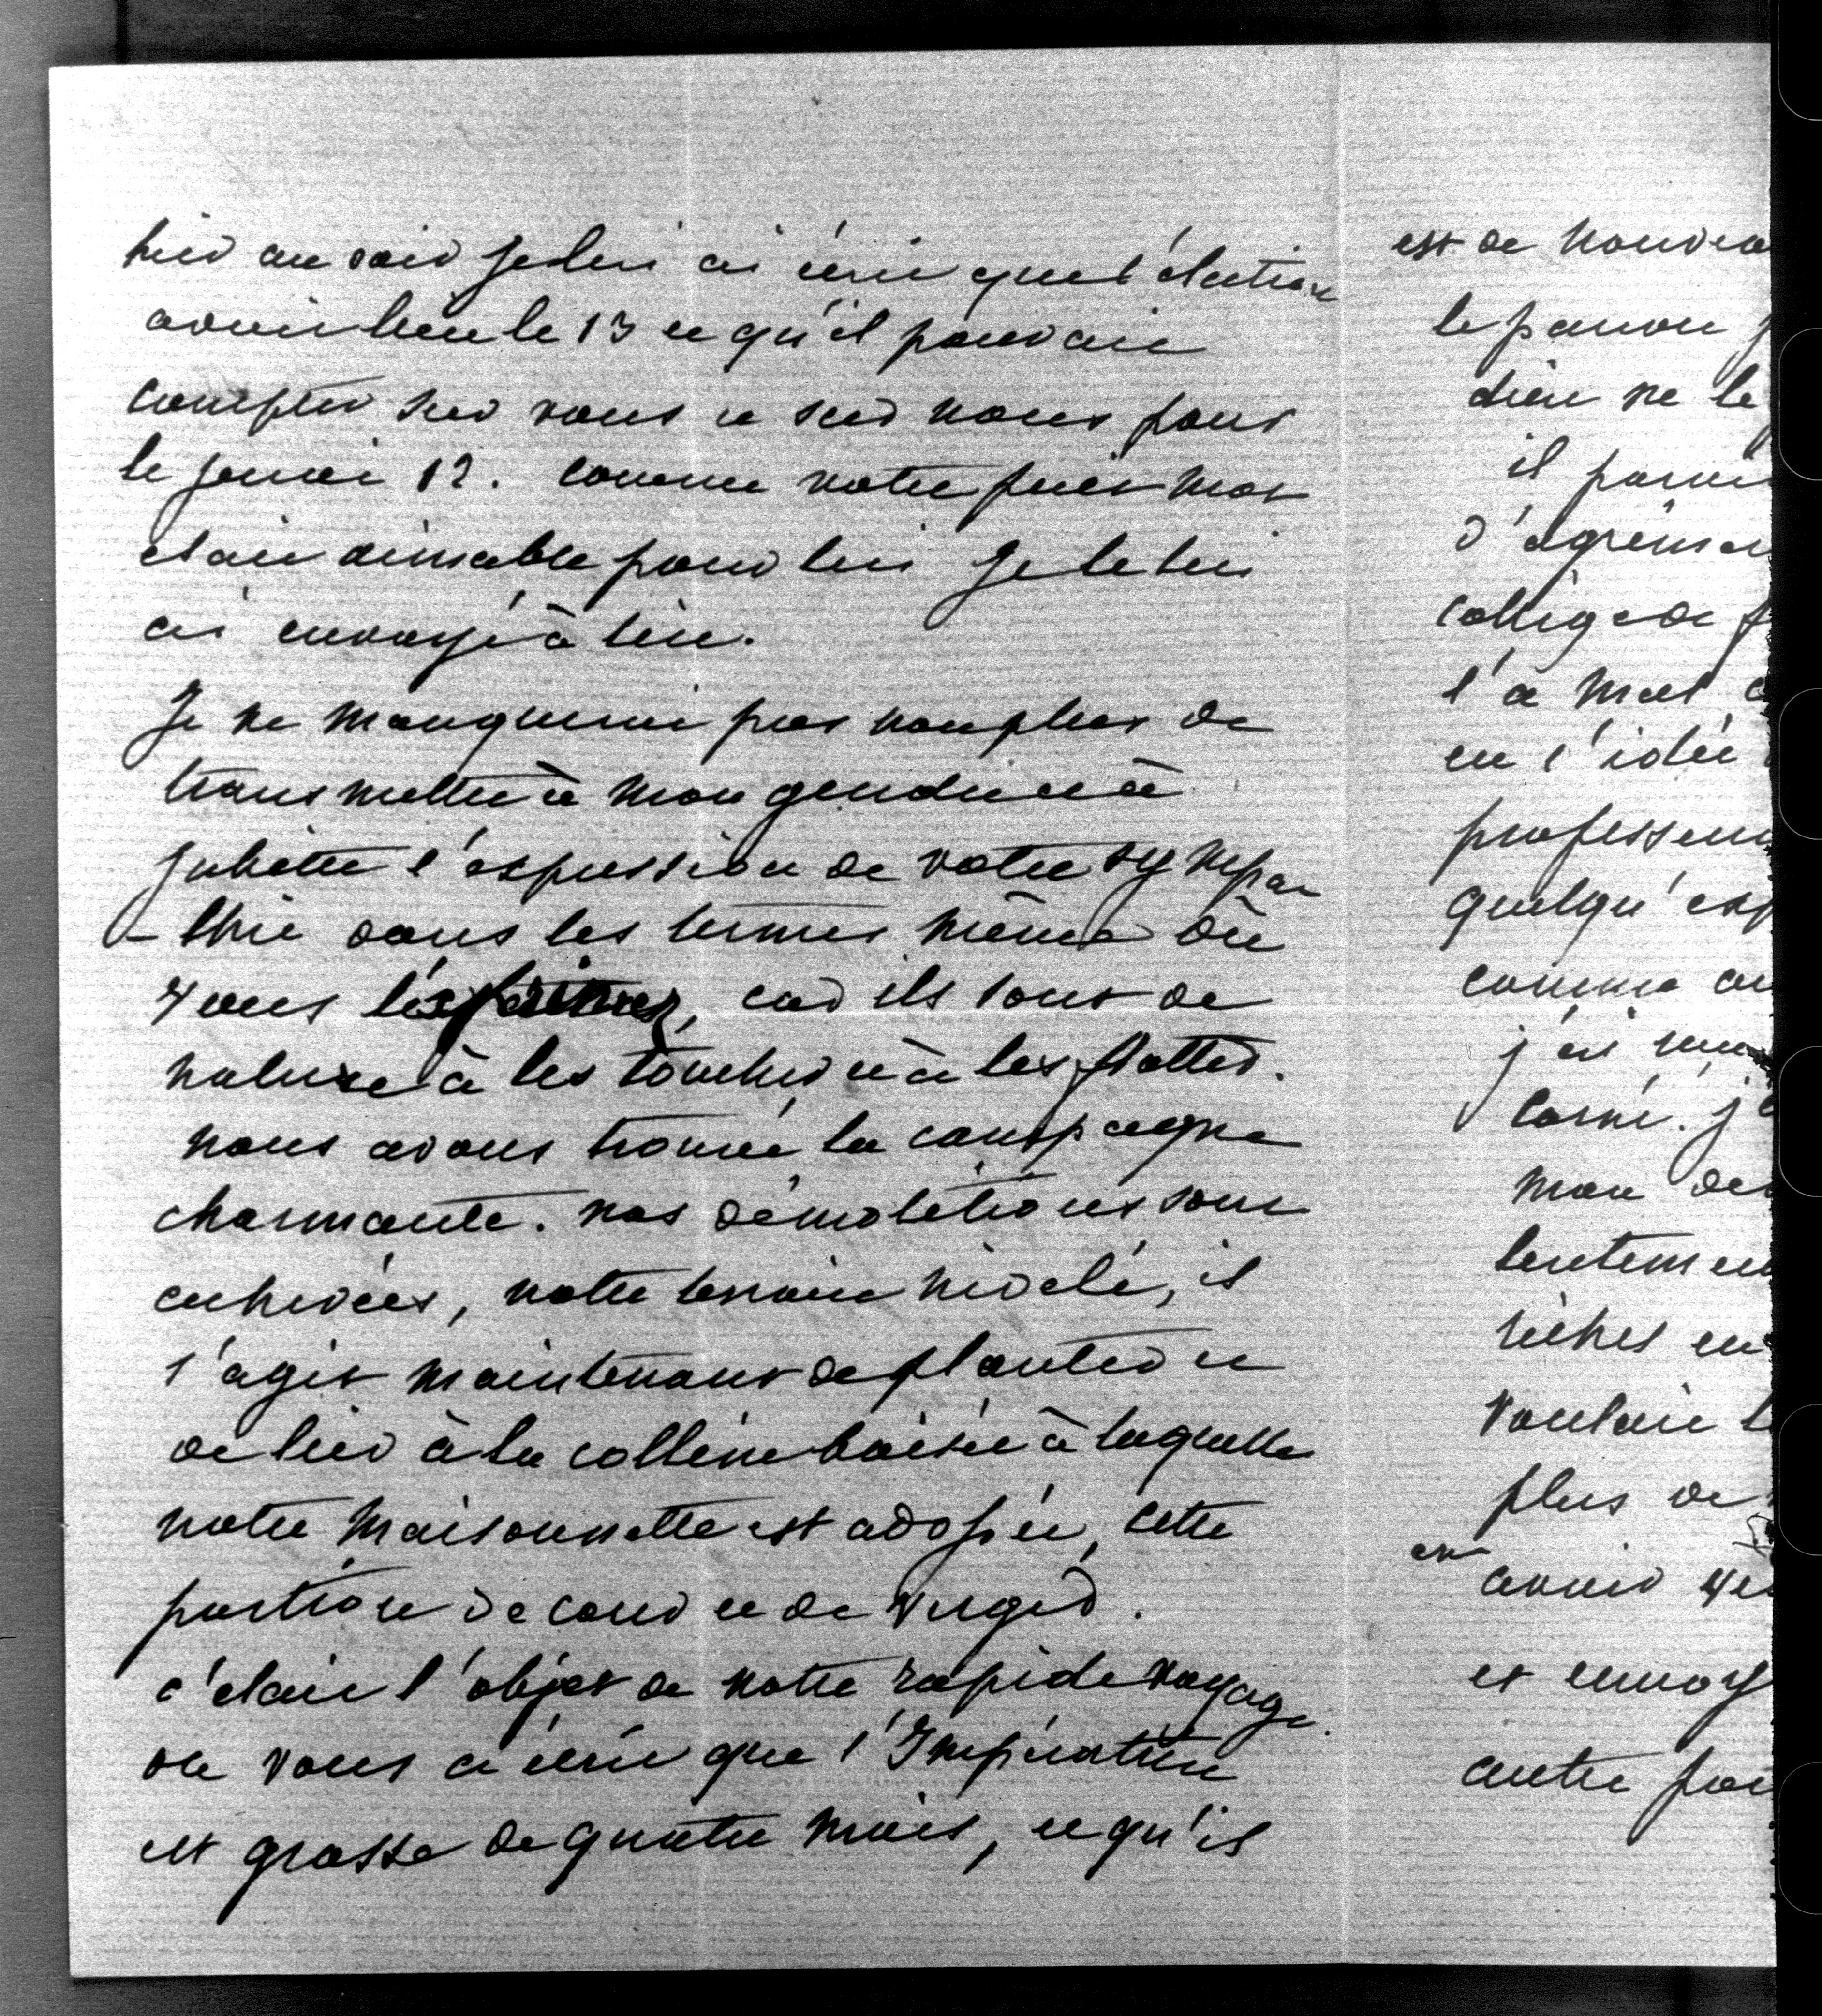 hier au soir je lui ai écrit que l'élection
avait lieu le 13 et qu'il pouvait
compter sur vous et sur nous pour
le jeudi 12. comme votre petit mot
était aimable pour lui je le lui
ai envoyé à lire.
Je ne manquerai pas non plus de
transmettre à mon gendre et à
Juliette l'expression de votre sympa
-thie dans les termes même où
vous l'exprimez, car ils sont de
nature à les toucher et à les flatter.
nous avons trouvé la campagne
charmante. nos démolitions sont
enlevées, notre terrain nivelé, il
s'agit maintenant de planter et
de lier à la colline boisée à laquelle
notre maisonnette est adossée, cette
portion de cour et de verger.
c'était l'objet de notre rapide voyage.
on vous a écrit que l'Impératrice
est grosse de quatre mois, et qu'il
est de nouveau
le
dieu ne le
il
d'agrém
collège de
l'a mal
eu l'idée
professeur
quelqu'esp
comme
j'ai
mon
lentement
riches en
vouloir
plus de
en
avoir
et envoy
autre